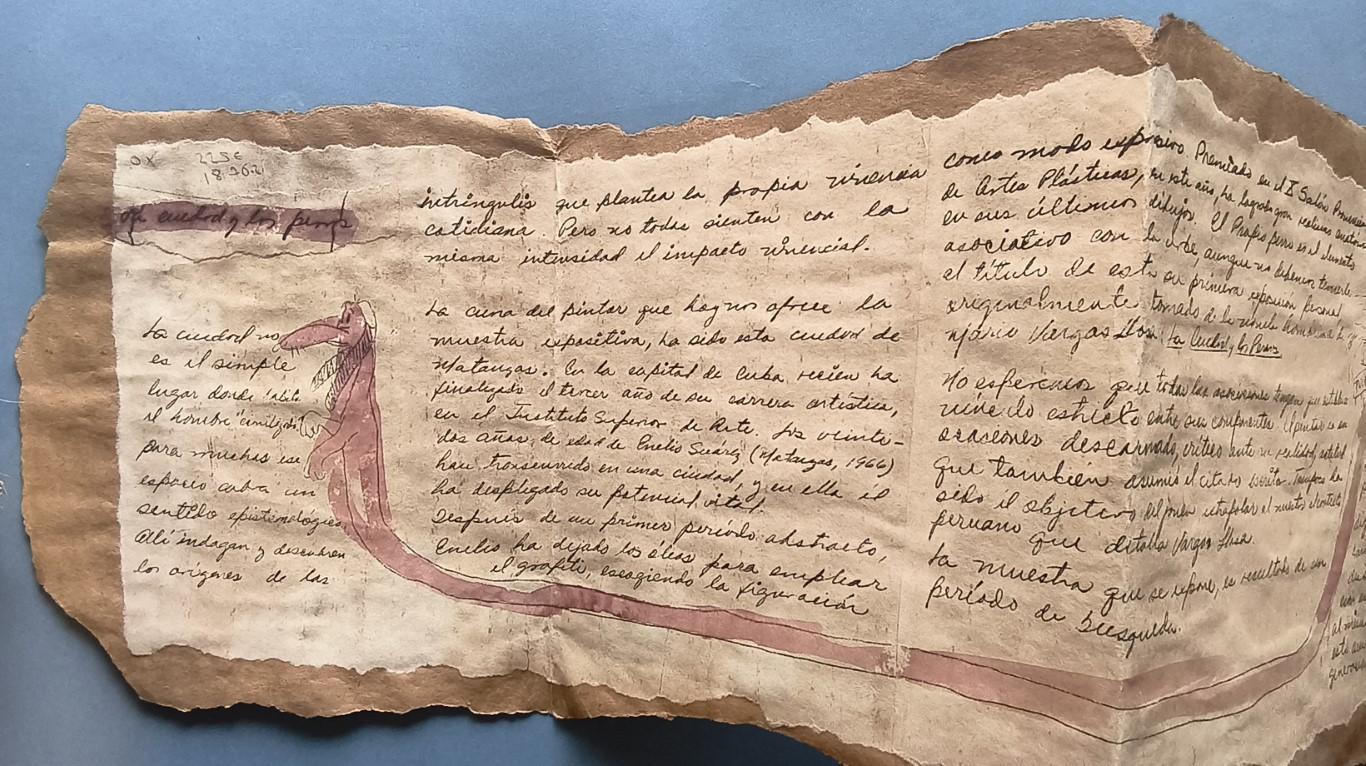 La ciudad y los perros
La ciudad no
es el simple
lugar donde habita
el hombre "civilizado"
para muchos ese
espacio cobra un
sentido epistemológico
Allí indagan y descubren
los orígenes de las
intríngulis que plantea la propia vivencia
cotidiana. Pero no todos sienten con la
misma intensidad el impacto vivencial.
La cuna del pintor que hoy nos ofrece la
muestra expositiva, ha sido esta ciudad de
Matanzas. En la capital de Cuba, recien ha
finalizado el tercer año de su carrera artística,
en el Instituto Superior de Arte. Los veinte-
dos años, de edad de Enelio Suárez (Matanzas, 1966)
han transcurrido en una ciudad, y en ella él
ha desplegado su potencial vital.
Después de un primer período abstracto,
Enelio ha dejado los óleos para emplear
el grafiti, escogiendo la figuración
como modo expresivo. Premiado en el X Salón Provincial
de Artes Plásticas, en este año, ha logrado gran
en sus últimos dibujos. El Propio perro es el elemento
asociativo con la urbe, aunque no debemos temerle–
el título de esta su primera exposición personal
originalmente tomado de la novela homónima de
Mario Vargas Llosa. La Ciudad y los Perros
No esperemos que todas las asociaciones tengan que establecer
vínculo estricto entre sus componentes. El pintor es en
ocasiones descarnado, crítico ante su realidad, actitud
que también asumió el citado escrito. Tampoco ha
sido el objetivo del joven extrapolar el nuestro el contexto
peruano que citaba Vargas Llosa.
La muestra que se expone, es resultado de un
período de búsqueda.